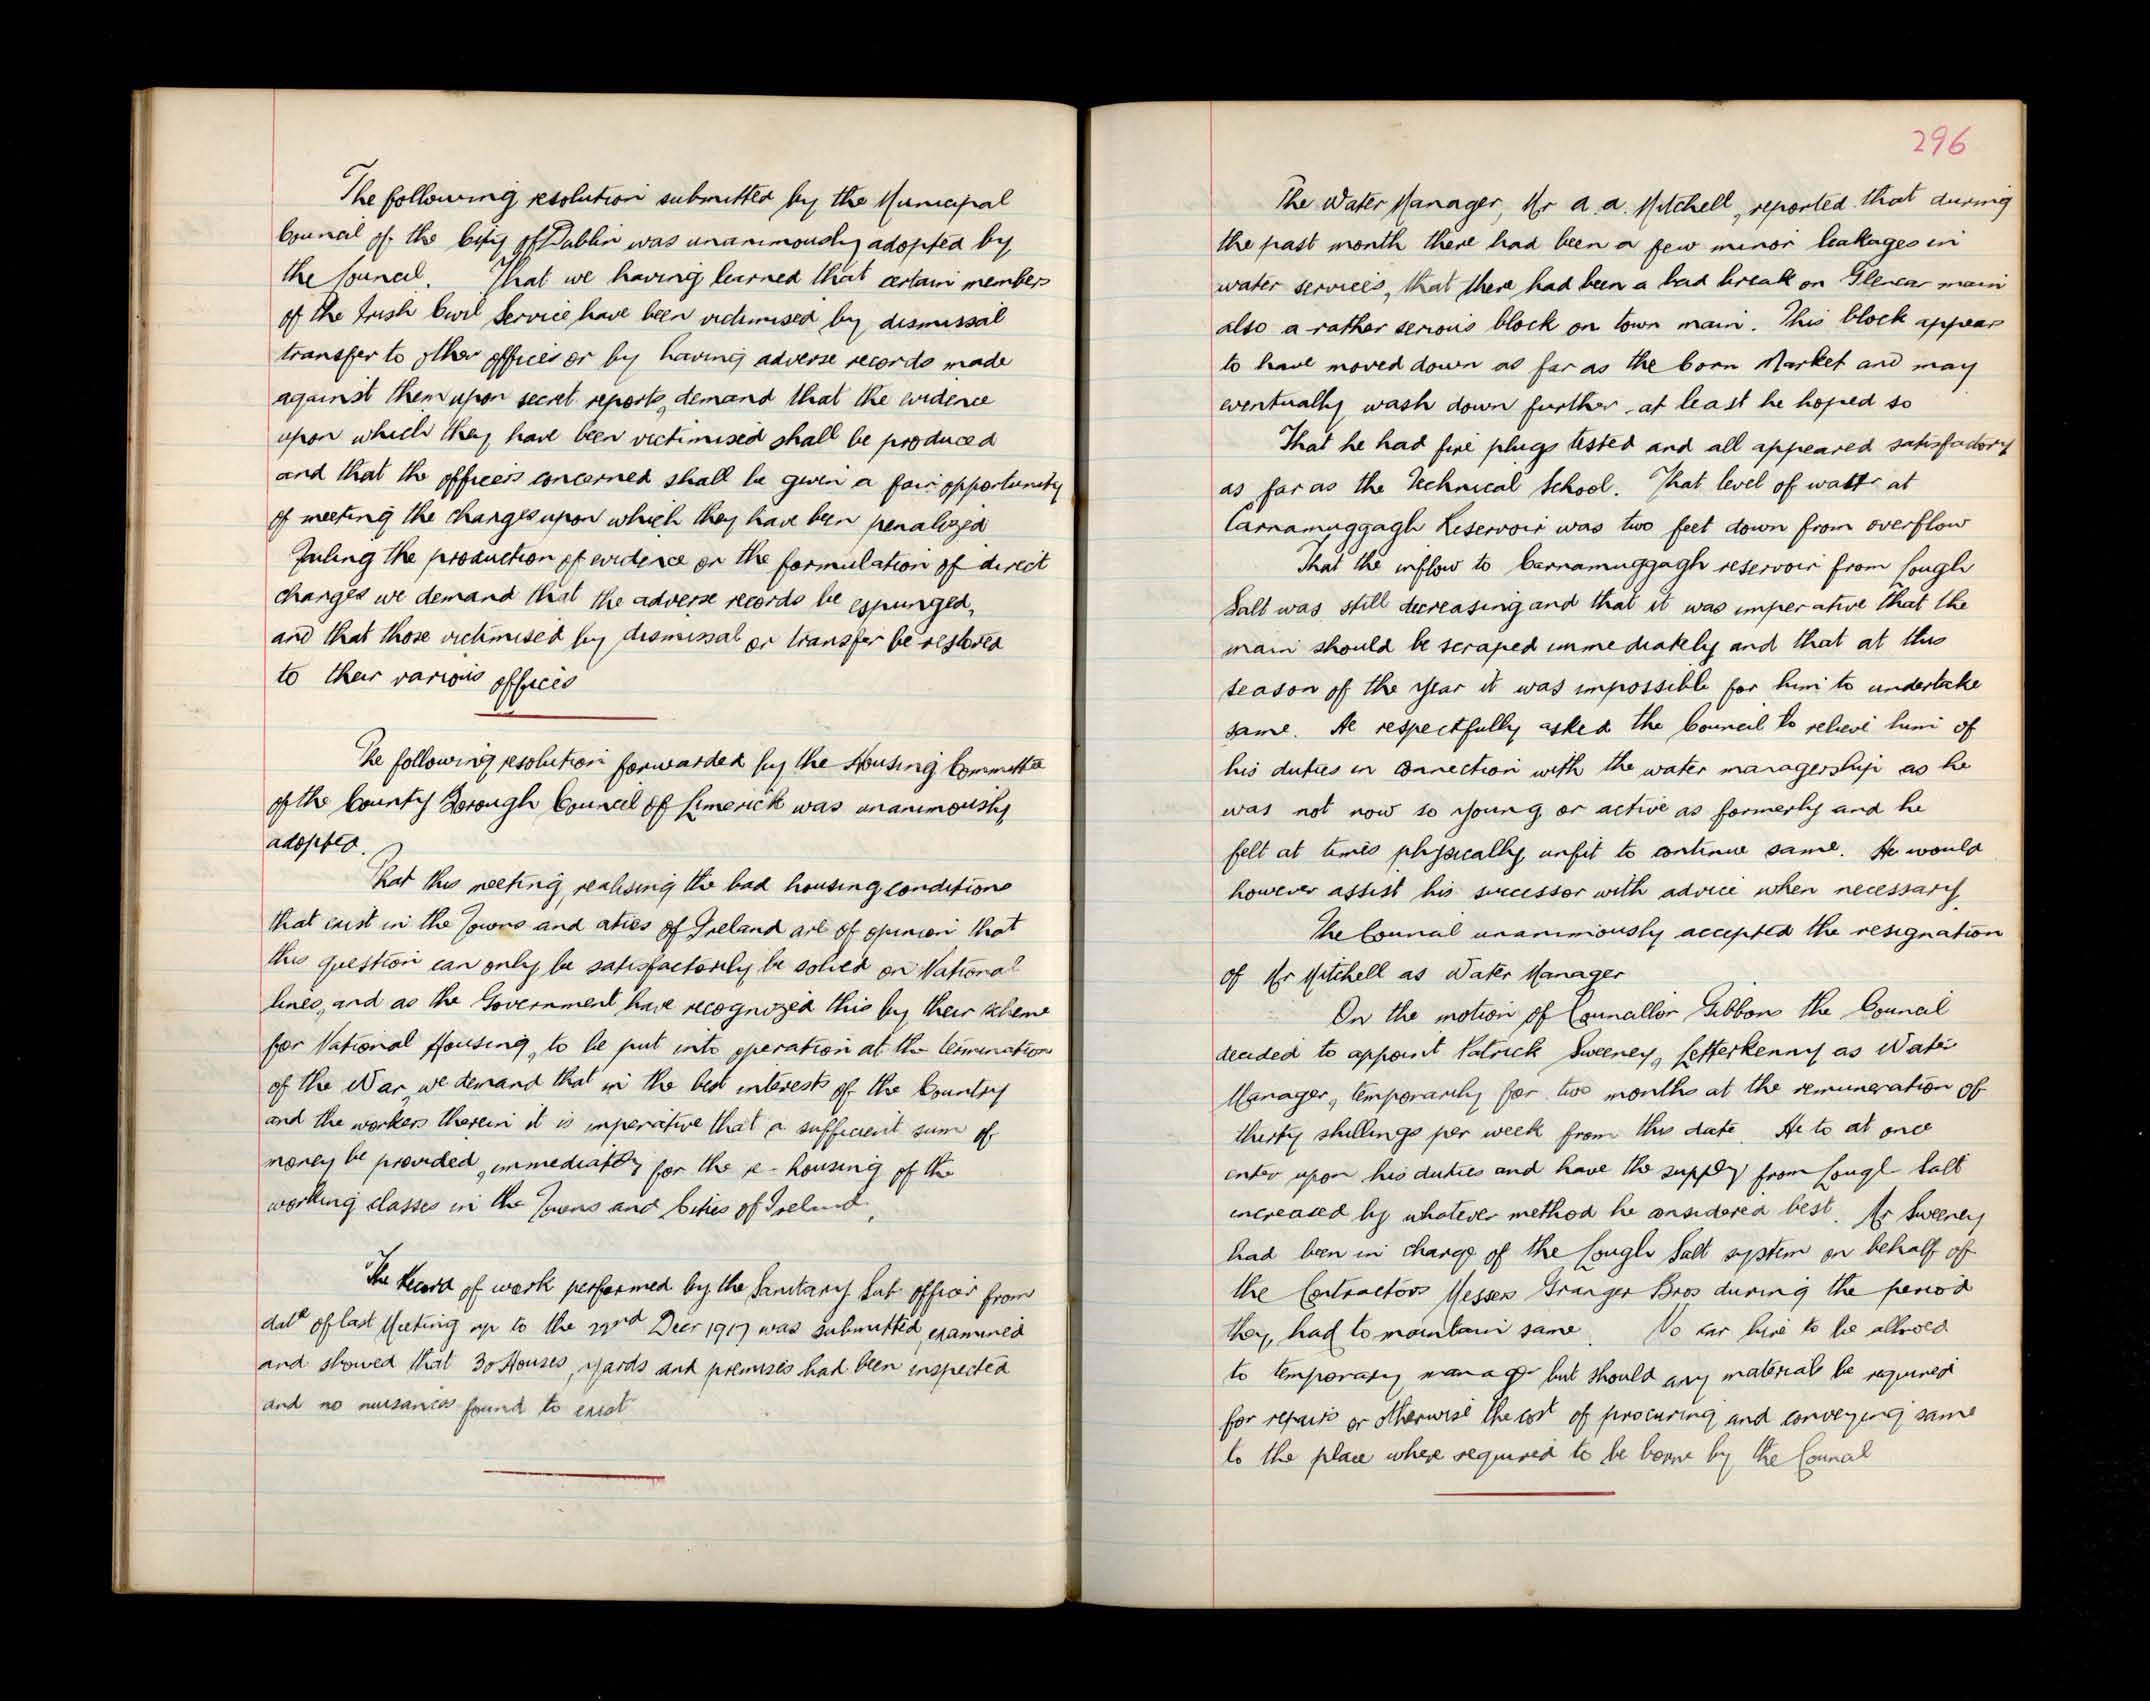 The following resolution submitted by the Municipal
Council of the City of Dublin was unanimously adopted by
the Council. That we having learned that certain members
of the Irish Civil Service have been victimised by dismissal
transfer to other offices or by having adverse records made
against them upon secret reports, demand that the evidence
upon which they have been victimised shall be produced
and that the officers concerned shall be given a fair opportunity
of meeting the charges upon which they have been penalized
Failing the production of evidence or the formulation of direct
charges we demand that the adverse records be espunged,
and that those victimised by dismissal or transfer be restored
to their various offices
The following resolution forwarded by the Housing Committee
of the County Borough Council of Limerick was unanimously
adopted.
That this meeting, realising the bad housing conditions
that exist in the Towns and cities of Ireland are of opinion that
this question can only be satisfactorily be solved on National
lines, and as the Government have recognized this by their scheme
for National Housing, to be put into operation at the termination
of the War, we demand that in the best interests of the Country
and the workers therein it is imperative that a sufficient sum of
money be provided, immediately for the re-housing of the
working classes in the Towns and Cities of Ireland.
The Record of work performed by the Sanitary Sub officer from
date of last Meeting up to the 22nd Decr 1917 was submitted, examined
and showed that 30 Houses, yards and premises had been inspected
and no nuisances found to exist
296
The Water Manager, Mr A. A. Mitchell, reported that during
the past month there had been a few minor leakages in
water services, that there had been a bad break on Glencar main
also a rather serious block on town main. This block appears
to have moved down as far as the Corn Market and may
eventually wash down further, at least he hoped so
That he had fire plugs tested and all appeared satisfactory
as far as the Technical School. That level of water at
Carnamuggagh Reservoir was two feet down from overflow
That the inflow to Carnamuggagh reservoir from Lough
Salt was still decreasing and that it was imperative that the
main should be scraped immediately and that at this
season of the year it was impossible for him to undertake
same. He respectfully asked the Council to relieve him of
his duties in connection with the water managership as he
was not now so young or active as formerly and he
felt at times physically unfit to continue same. He would
however assist his successor with advice when necessary
The Council unanimously accepted the resignation
of Mr Mitchell as Water Manager
On the motion of Councillor Gibbons the Council
decided to appoint Patrick Sweeney, Letterkenny as Water
Manager, temporarily for two months at the remuneration of
thirty shillings per week from this date. He to at once
enter upon his duties and have the supply from Lough Salt
increased by whatever method he considered best. Mr Sweeney
had been in charge of the Lough Salt system on behalf of
the Contractors Messrs Granger Bros during the period
they had to maintain same. No car hire to be allowed
to temporary manager but should any material be required
for repairs or otherwise the cost of procuring and conveying same
to the place where required to be borne by the Council